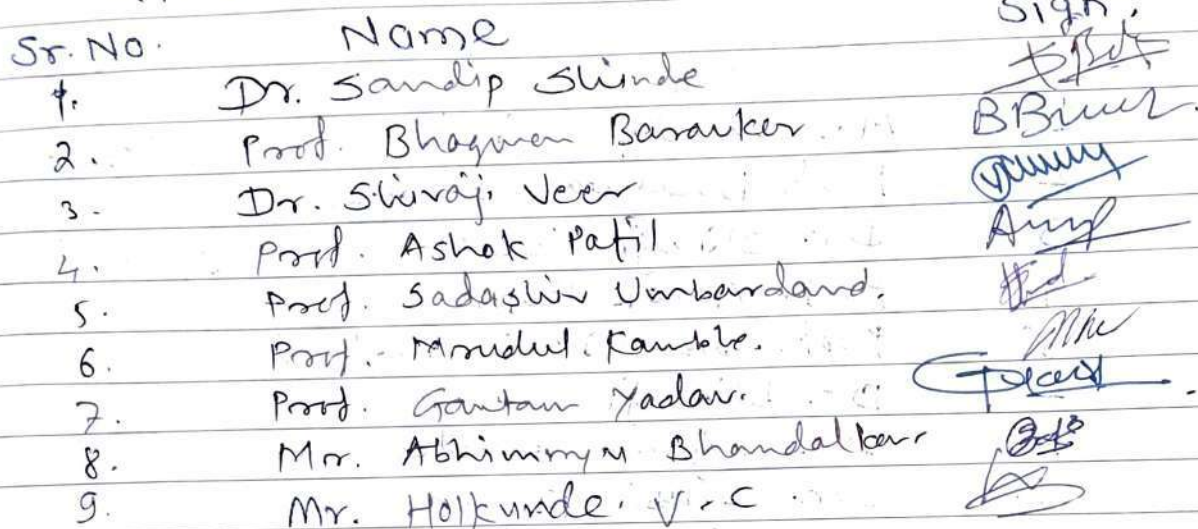 Sr. No. Name Sign.
1. Dr. Sandip Shinde
2. Prof. Bhagwan Baravkar
3. Dr. Shivaji Veer
4. Prof. Ashok Patil.
5. Prof. Sadashiv Umbardand.
6. Prof. Mrudul Kamble.
7. Prof. Gautam Yadav.
8. Mr. Abhimnyu Bhandalkar
9. Mr. Holkunde. V. C